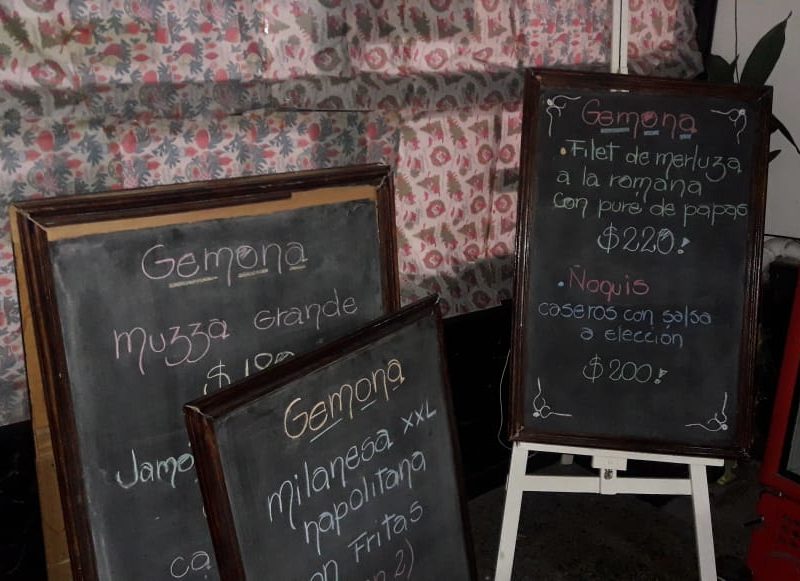 Gemona
muzza Grande
Gemona
milanesa XXL
napolitana
Fritas
Gemona
Filet de merluza
a la romana
con puré de papas
$220.-
Ñoquis
caseros con salsa
a elección
$200.-